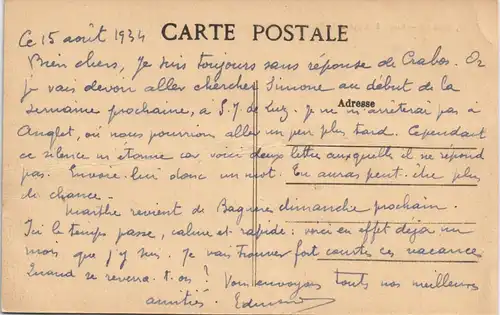 Ce 15 août 1934
CARTE POSTALE
Bien chers, Je suis toujours sans réponse de Crabos. Or
je vais devoir aller chercher Simone au début de la
semaine prochaine, a S. J. de Luz. Je ne m'arrêterai pas à
Adresse
Anglet, où nous pourrons aller un peu plus tard. Cependant
ce silence m'étonne car voici deux lettres auxquelles il ne répond
pas. Envoie-lui donc un mot. Tu auras peut-être plus
de chance.
Marthe revient de Bagnères dimanche prochain.
Ici le temps passe, calme et rapide : voici en effet déjà un
mois que j'y suis. Je vais trouver fort courtes ces vacances
Quand se reverra-t-on ? Vous envoyons toutes nos meilleures
amitiés. Edmond